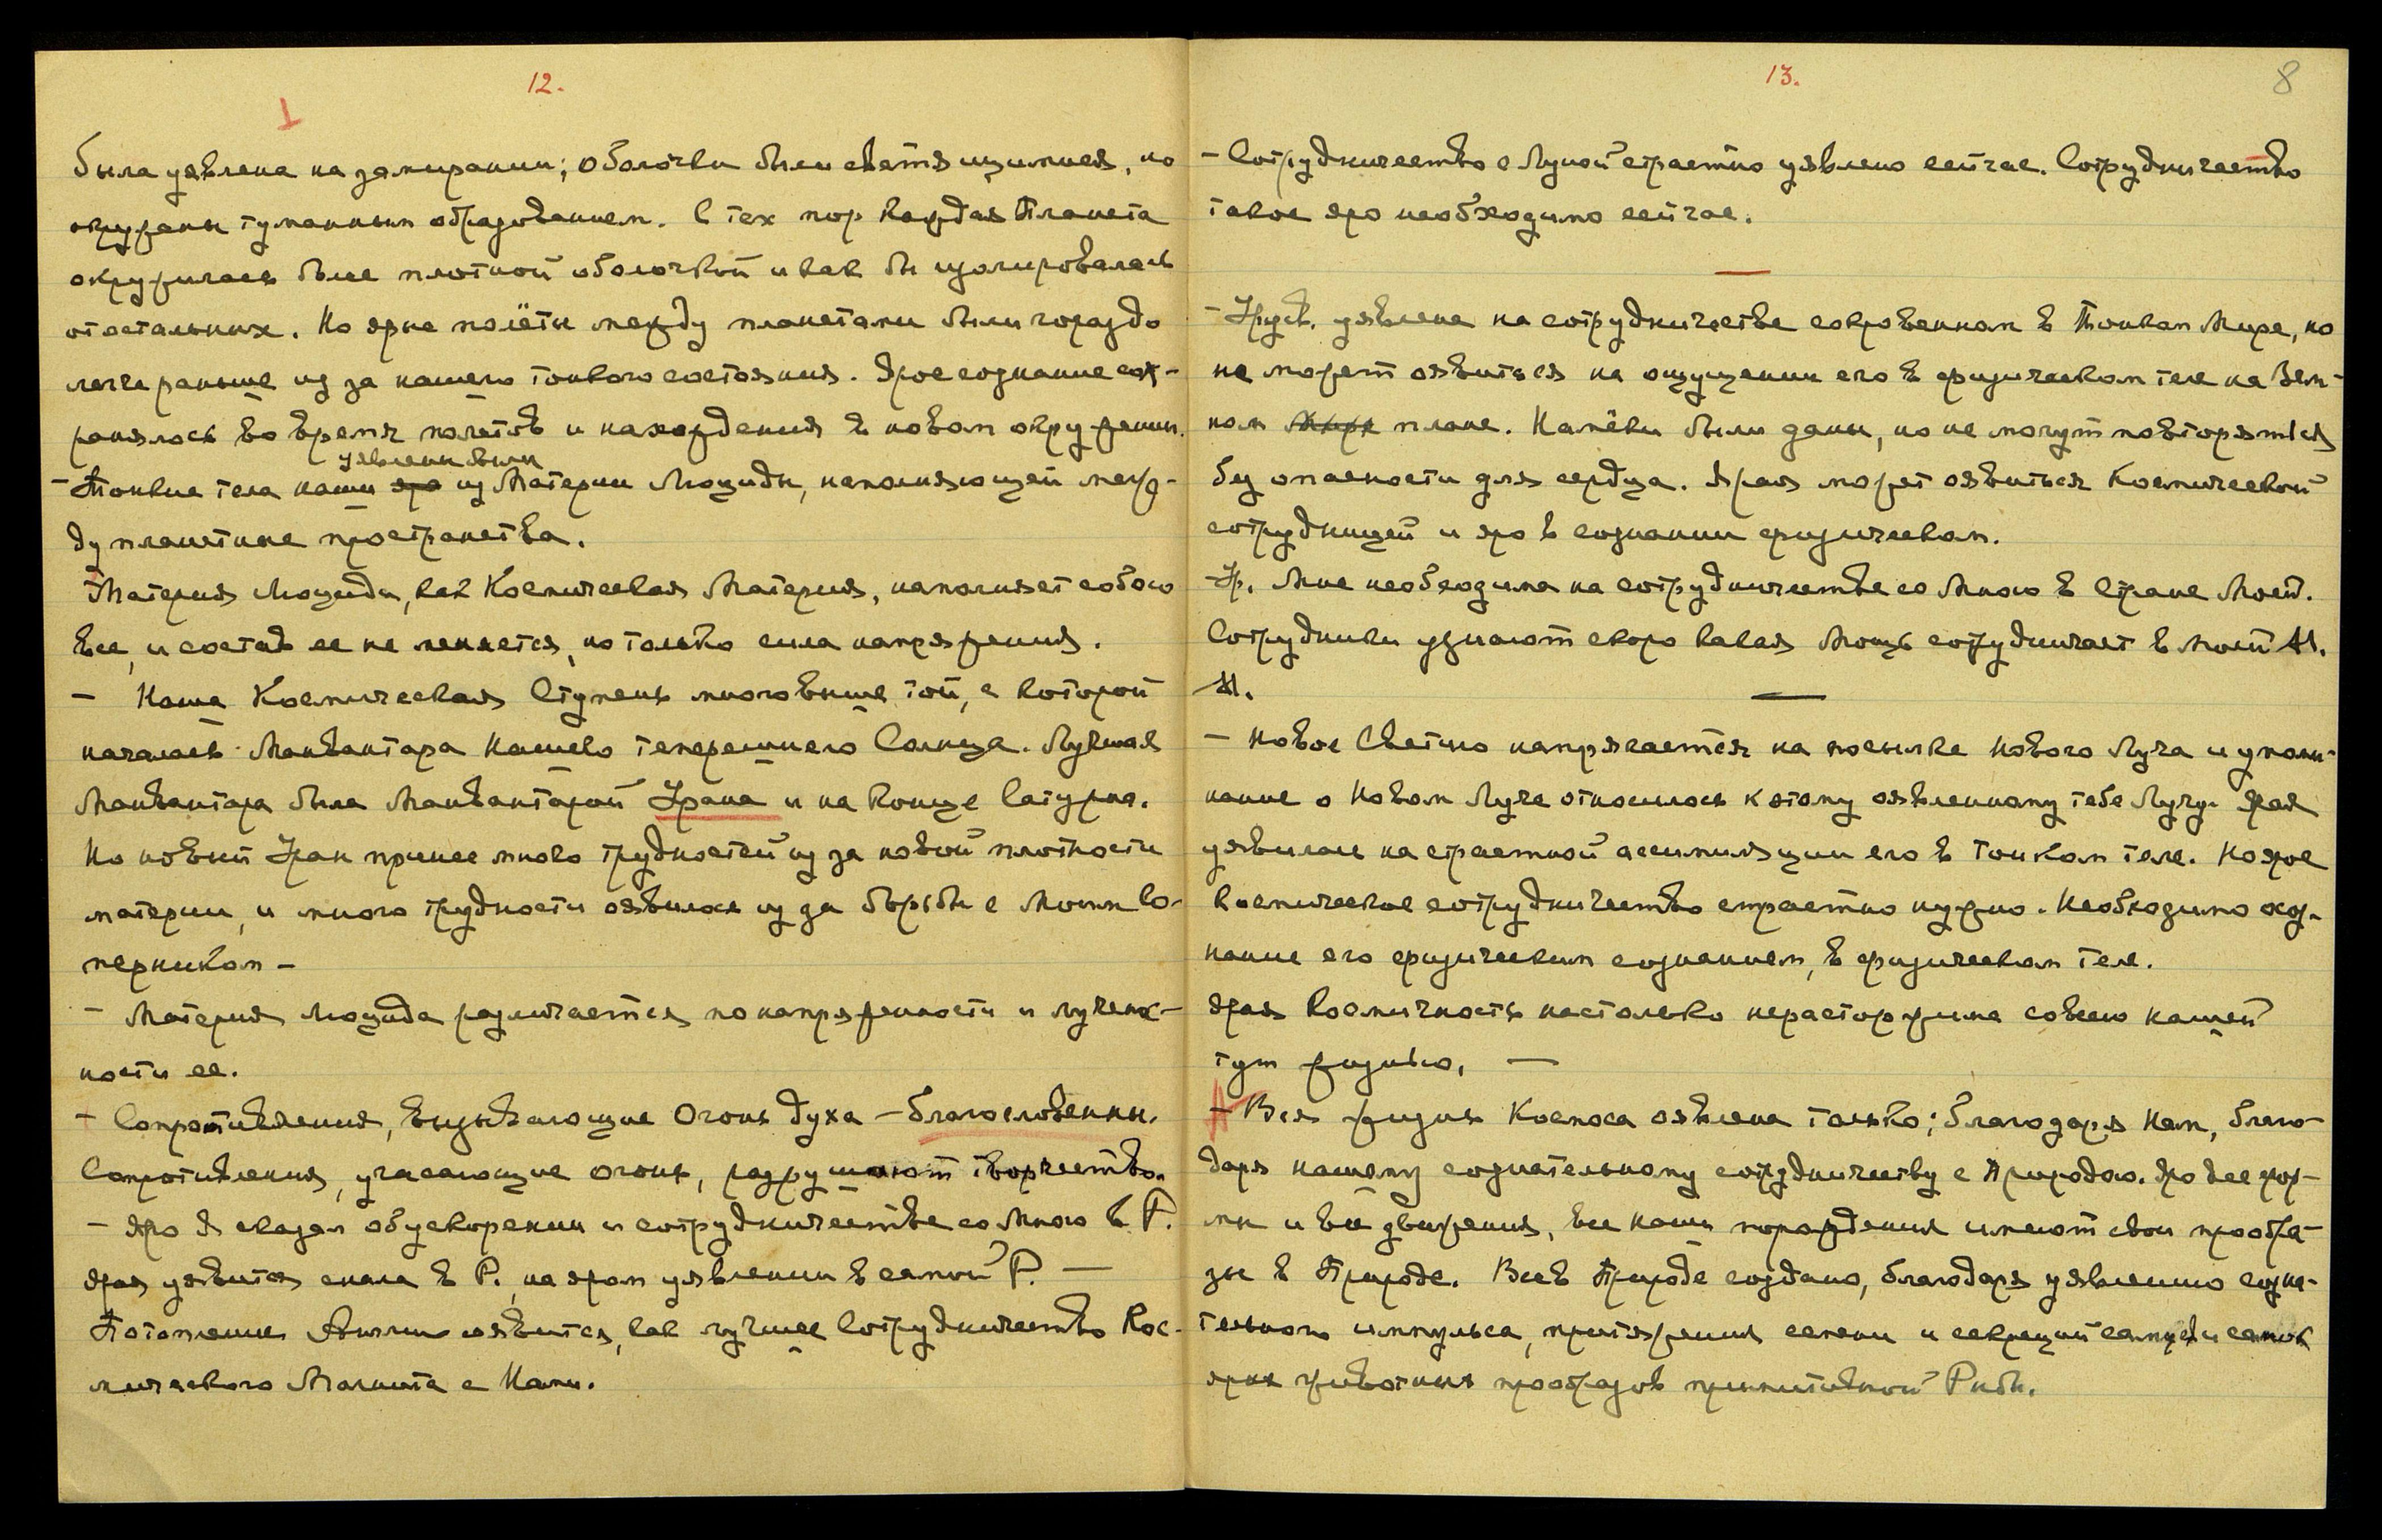 12.
была уявлена на замирании; оболочки были светящимися, но
окружены туманным образованием. С тех пор каждая Планета
окружилась более плотной оболочкой и как бы изолировалась
от остальных. Но ярые полёты между планетами были гораздо
легче раньше из за нашего тонкого состояния. Ярое сознание сох-
ранялось во время полетов и нахождения в новом окружении.
уявлены были
- Тонкие тела наши яро из Материи Люциды, наполняющей меж-
ду планетные пространства.
Материя Люцида, как Космическая Материя, наполняет собою
все, и состав ее не меняется, но только сила напряжения.
- Наша Космическая Ступень много выше той, с которой
началась Манвантара Нашего теперешнего Солнца. Лучшая
Манвантара была Манвантарой Урана и на конце Сатурна.
Но новый Уран принес много трудностей из за новой плотности
материи, и много трудности оявилось из за борьбы с Моим Со-
перником -
- Материя Люцида различается по напряженности и лученос-
ности ее.
- Сопротивления, вызывающие Огонь духа - благословенны.
Сопротивления, угасающие огонь, разрушают творчество.
- Яро Я сказал об ускорении и сотрудничестве со Мною в Р.
Ярая уявится снача в Р. на яром уявлении в самой Р. —
Потопление Англии оявится, как лучшее Сотрудничество Кос-
мического Магнита с Нами.
13.
8
- Сотрудничество с Луной страстно уявлено сейчас. Сотрудничество
такое яро необходимо сейчас.
- Урусв. уявлена на сотрудничестве сокровенном в Тонком Мире, но
не может оявиться на ощущении его в физическом теле на Зем-
ном Мире плане. Намёки были даны, но не могут повторяться
без опасности для сердца. Ярая может оявиться Космической
сотрудницей и яро в сознании физическом.
- Ур. Мне необходима на сотрудничестве со Мною в Стране Моей.
Сотрудники узнают скоро какая Мощь сотрудничает в Моей М.
М.
- Новое Светило напрягается на посылке Нового Луча и упоми-
нание о Новом Луче относилось к этому оявленному тебе Лучу. Ярая
уявилась на страстной ассимиляции его в тонком теле. Но ярое
космическое сотрудничество страстно нужно. Необходимо осоз-
нание его физическим сознанием, в физическом теле.
Ярая Космичность настолько нерасторжима со всею нашей
тут жизнью. —
- Вся жизнь Космоса оявлена только; благодаря Нам, благо-
даря нашему сознательному сотрудничеству с Природою. Яро все фор-
мы и все движения, все наши порождения имеют свои прообра-
зы в Природе. Все в Природе создано, благодаря уявлению созна-
тельного импульса, притяжения семени и секреций самцов и самок
ярых животных прообразов примитивной Рыбы.